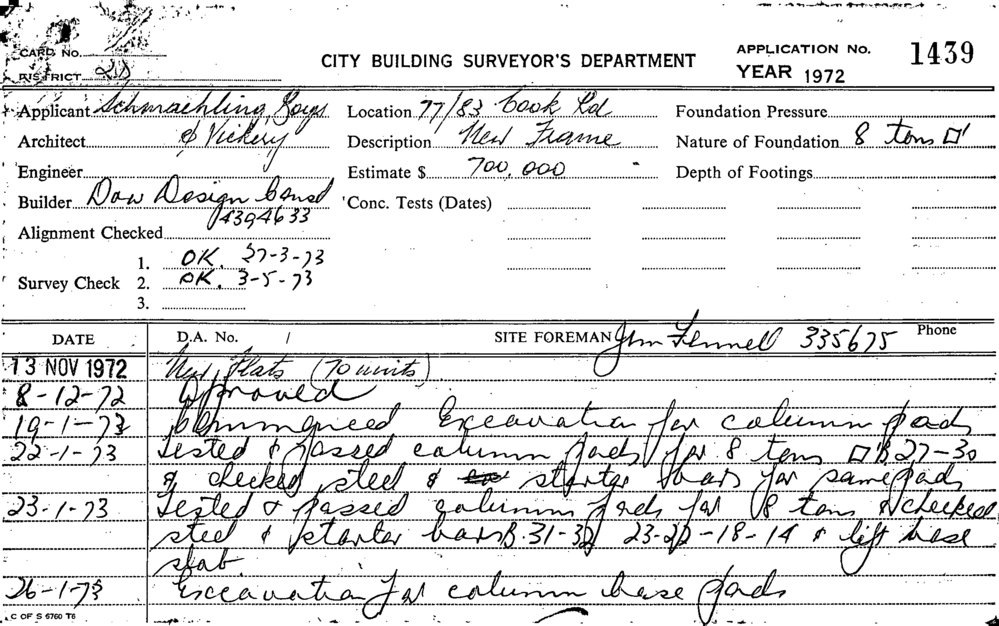 CARD No.
CITY BUILDING SURVEYOR'S DEPARTMENT
APPLICATION No. 1439
DISTRICT
YEAR 1972
Applicant Schmaehling, Loys
Location 77/83 Cook Rd
Foundation Pressure
Architect & Vickery
Description New Frame
Nature of Foundation 8 tons □'
Engineer
Estimate $ 700,000
Depth of Footings
Builder Dow Design Const
4394633
Conc. Tests (Dates)
Alignment Checked
1. OK. 27-3-73
Survey Check 2. OK. 3-5-73
3.
DATE D.A. No. / SITE FOREMAN Jim Fennell 335675 Phone
13 NOV 1972 New Flats (70 units)
8-12-72 Approved
19-1-73 Commenced Excavation for column pads
22-1-73 Tested & passed column pads for 8 tons □' B 27-30
& checked steel & starter bars for same pads
23-1-73 Tested & passed column pads for 8 tons & checked
steel & starter bars B. 31-32 23-22-18-14 & lift base
slab
26-1-73 Excavation for column base pads
C OF S 6760 T6